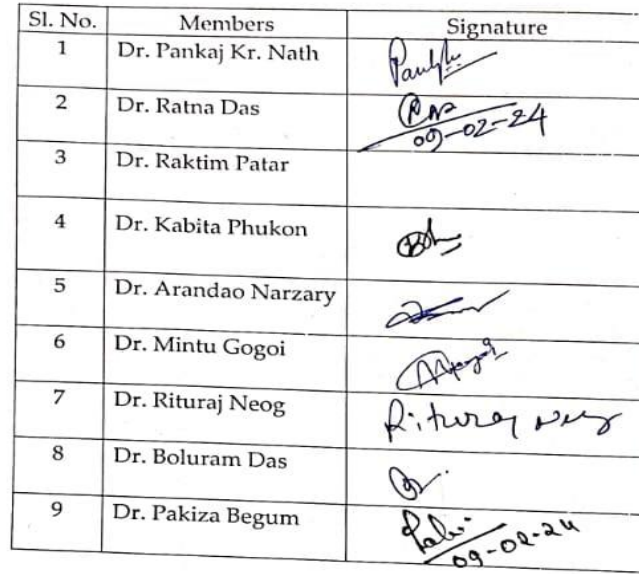 Sl. No. Members Signature
1 Dr. Pankaj Kr. Nath
2 Dr. Ratna Das
09-02-24
3 Dr. Raktim Patar
4 Dr. Kabita Phukon
5 Dr. Arandao Narzary
6 Dr. Mintu Gogoi
7 Dr. Rituraj Neog Rituraj Neog
8 Dr. Boluram Das
9 Dr. Pakiza Begum
09-02-24